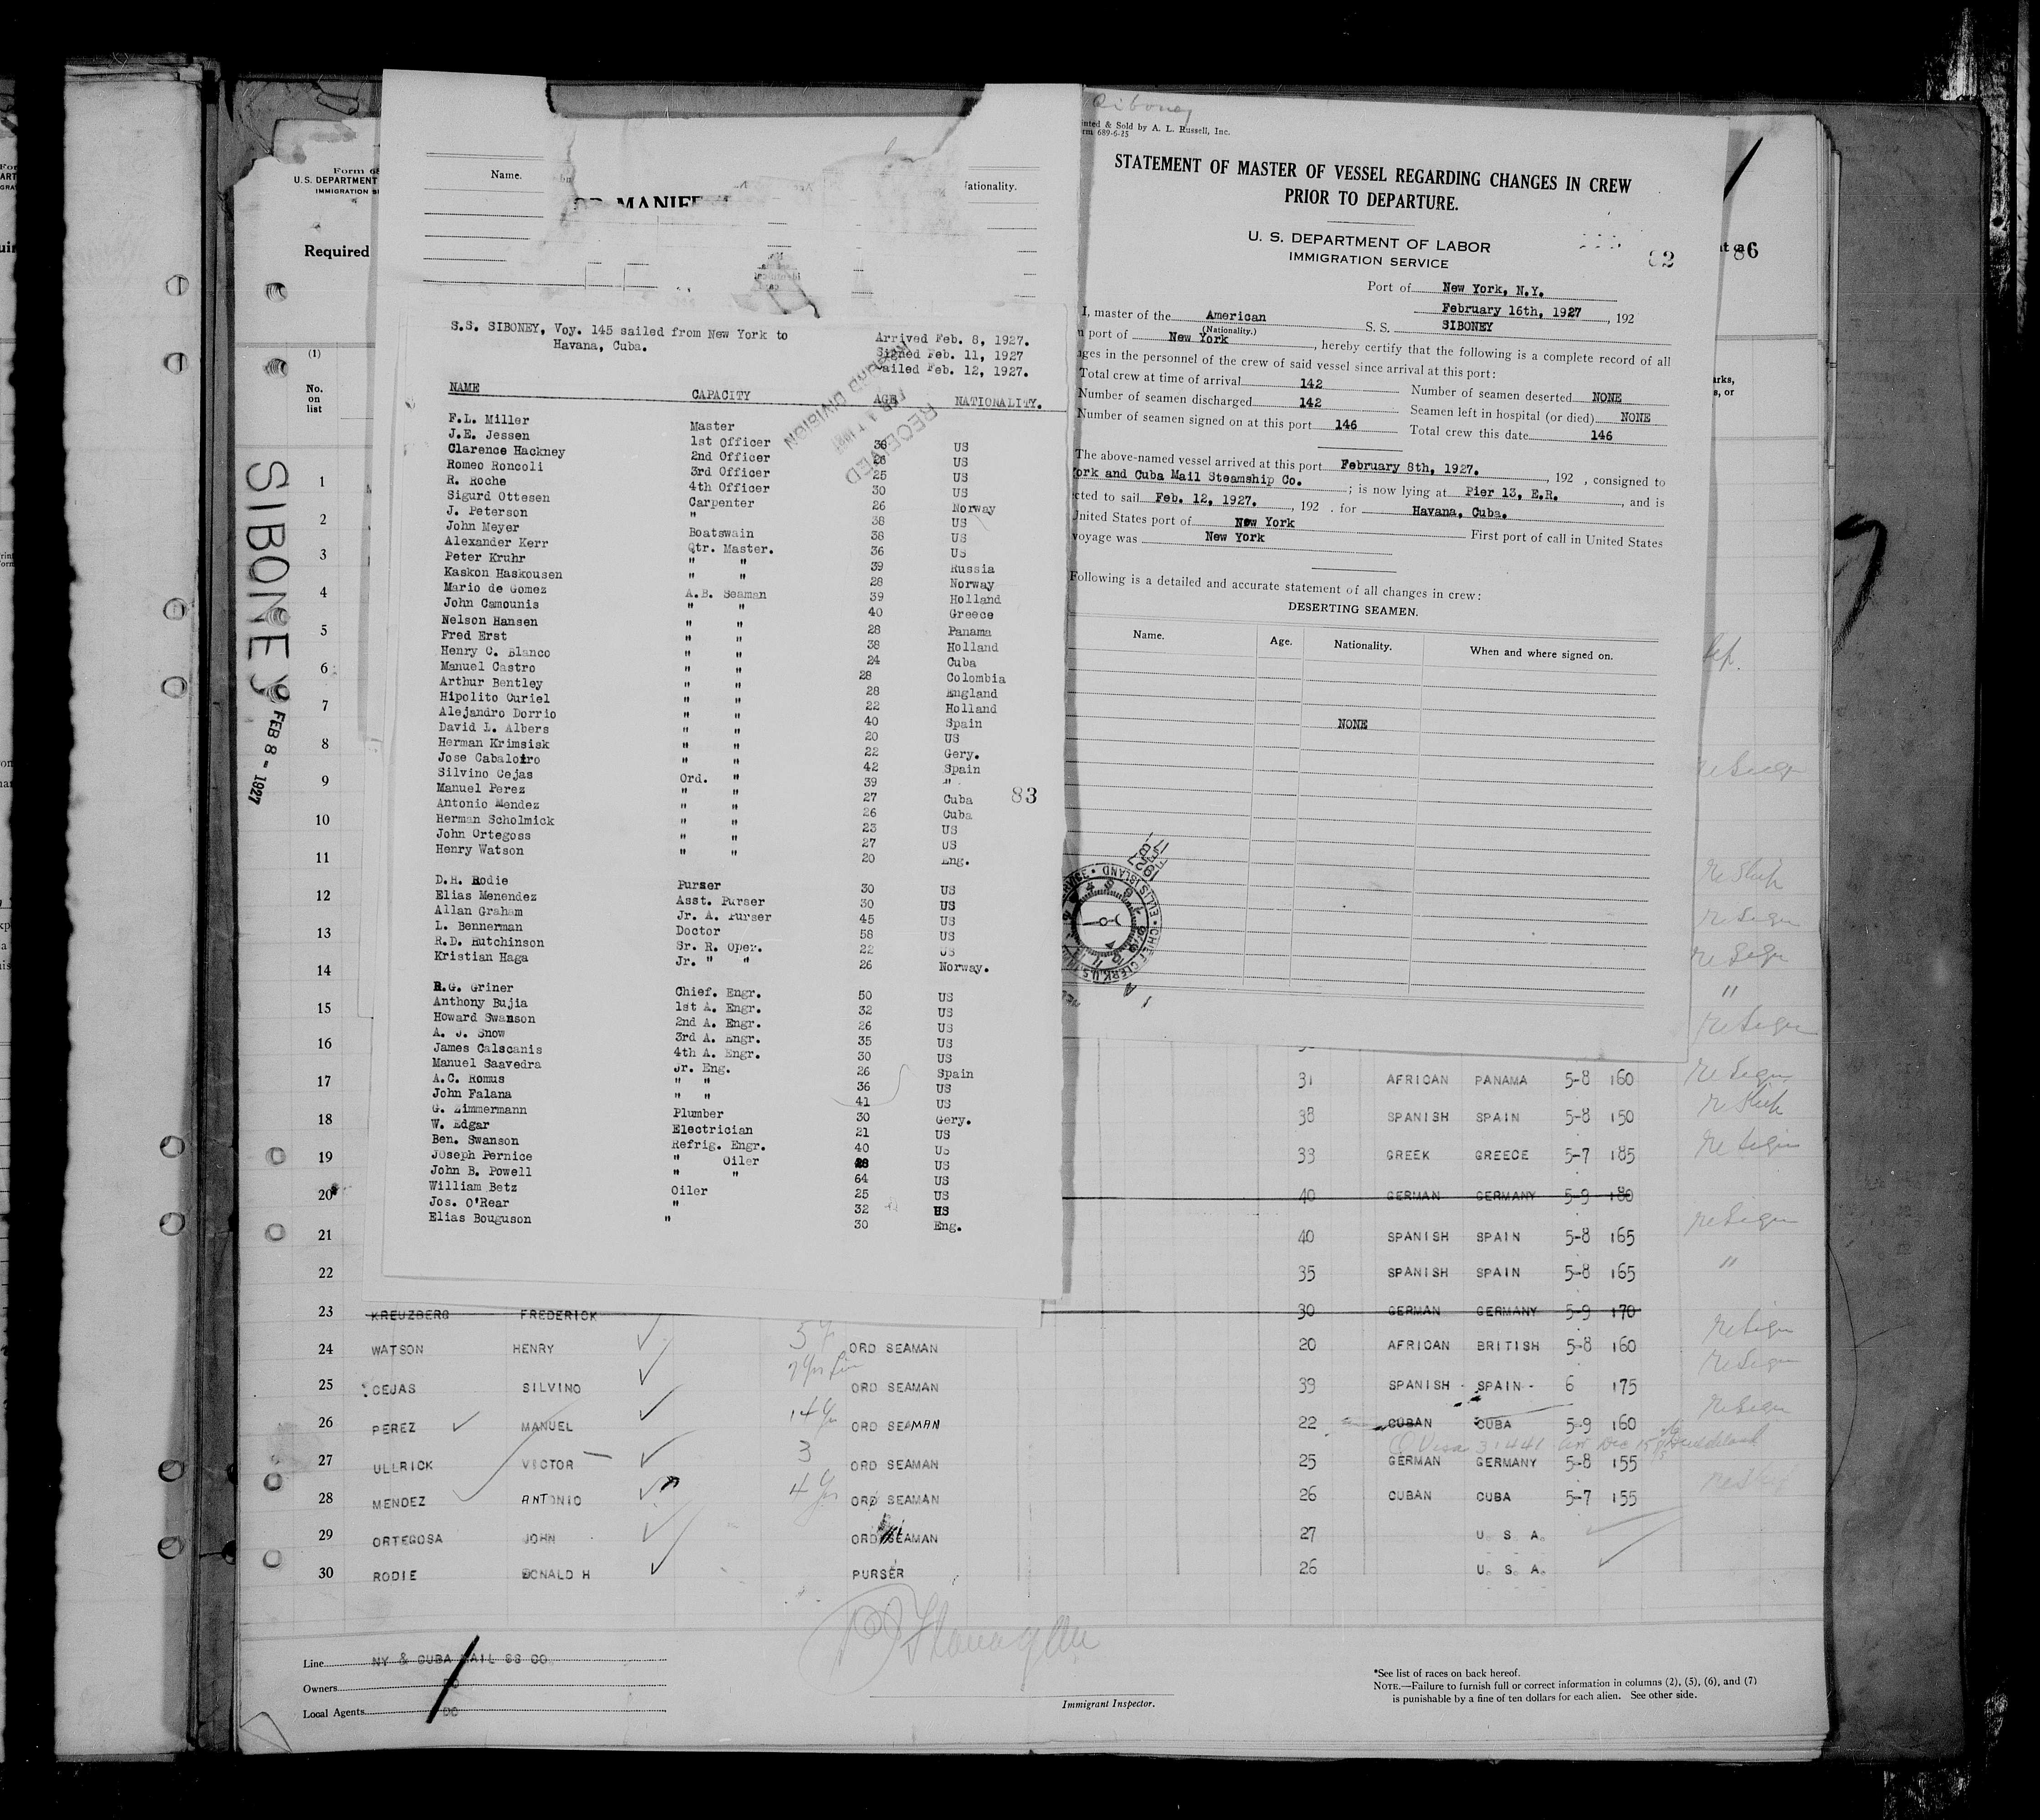 Form 68
U.S. DEPARTMENT
IMMIGRATION SE
Required
(1)
No.
on
list
SIBONEY
FEB 8 - 1927
Name.
Nationality.
OR MANIFE
S.S. SIBONEY, Voy. 145 sailed from New York to
Havana, Cuba.
Arrived Feb. 8, 1927.
Signed Feb. 11, 1927
Sailed Feb. 12, 1927.
RECEIVED
DIVISION
NAME CAPACITY AGE NATIONALITY.
F.L. Miller Master
J.E. Jessen 1st Officer 38 US
Clarence Hackney 2nd Officer 26 US
Romeo Roncoli 3rd Officer 25 US
R. Roche 4th Officer 30 US
Sigurd Ottesen Carpenter 26 Norway
J. Peterson " 38 US
John Meyer Boatswain 38 US
Alexander Kerr Qtr. Master. 36 US
Peter Kruhr " " 39 Russia
Kaskon Haskousen " " 28 Norway
Mario de Gomez A.B. Seaman 39 Holland
John Camounis " " 40 Greece
Nelson Hansen " " 28 Panama
Fred Erst " " 38 Holland
Henry C. Blanco " " 24 Cuba
Manuel Castro " " 28 Colombia
Arthur Bentley " " 28 England
Hipolito Curiel " " 22 Holland
Alejandro Dorrio " " 40 Spain
David L. Albers " " 20 US
Herman Krimsisk " " 22 Gery.
Jose Cabaloiro " " 42 Spain
Silvino Cejas Ord. " 39 "
Manuel Perez " " 27 Cuba
Antonio Mendez " " 26 Cuba
Herman Scholmick " " 23 US
John Ortegoss " " 27 US
Henry Watson " " 20 Eng.
83
D.H. Rodie Purser 30 US
Elias Menendez Asst. Purser 30 US
Allan Graham Jr. A. Purser 45 US
L. Bennerman Doctor 58 US
R.D. Hutchinson Sr. R. Oper. 22 US
Kristian Haga Jr. " " 26 Norway.
R.G. Griner Chief. Engr. 50 US
Anthony Bujia 1st A. Engr. 32 US
Howard Swanson 2nd A. Engr. 26 US
A. J. Snow 3rd A. Engr. 35 US
James Calscanis 4th A. Engr. 30 US
Manuel Saavedra Jr. Eng. 26 Spain
A.C. Romus " " 36 US
John Falana " " 41 US
G. Zimmermann Plumber 30 Gery.
W. Edgar Electrician 21 US
Ben. Swanson Refrig. Engr. 40 US
Joseph Pernice " Oiler 28 US
John B. Powell " " 64 US
William Betz Oiler 25 US
Jos. O'Rear " 32 US
Elias Bouguson " 30 Eng.
Siboney
inted & Sold by A. L. Russell, Inc.
rm 689-6-25
STATEMENT OF MASTER OF VESSEL REGARDING CHANGES IN CREW
PRIOR TO DEPARTURE.
U. S. DEPARTMENT OF LABOR
IMMIGRATION SERVICE
82
Port of New York, N.Y.
February 16th, 1927, 192
I, master of the American S. S. SIBONEY
(Nationality.)
n port of New York, hereby certify that the following is a complete record of all
ges in the personnel of the crew of said vessel since arrival at this port:
Total crew at time of arrival 142 Number of seamen deserted NONE
Number of seamen discharged 142 Seamen left in hospital (or died) NONE
Number of seamen signed on at this port 146 Total crew this date 146
The above-named vessel arrived at this port February 8th, 1927., 192 , consigned to
ork and Cuba Mail Steamship Co. ; is now lying at Pier 13, E.R., and is
cted to sail Feb. 12, 1927., 192 . for Havana, Cuba.
United States port of New York First port of call in United States
voyage was New York
Following is a detailed and accurate statement of all changes in crew:
DESERTING SEAMEN.
Name. Age. Nationality. When and where signed on.
NONE
CHIEF CLERK U.S. ELLIS ISLAND
86
arks,
s, or
1
2
3
4
5
6
7
8
9
10
11
12
13
14
15
16
17 31 AFRICAN PANAMA 5-8 160
18 38 SPANISH SPAIN 5-8 150
19 33 GREEK GREECE 5-7 185
20 40 GERMAN GERMANY 5-9 180
21 40 SPANISH SPAIN 5-8 165
22 35 SPANISH SPAIN 5-8 165 "
23 KREUZBERG FREDERICK 30 GERMAN GERMANY 5-9 170
24 WATSON HENRY ORD SEAMAN 20 AFRICAN BRITISH 5-8 160
25 CEJAS SILVINO ORD SEAMAN 39 SPANISH - SPAIN - 6 175
26 PEREZ MANUEL 14 Yr ORD SEAMAN 22 CUBAN CUBA 5-9 160
27 ULLRICK VICTOR 3 ORD SEAMAN 25 GERMAN GERMANY 5-8 155
28 MENDEZ ANTONIO 4 Yrs ORD SEAMAN 26 CUBAN CUBA 5-7 155
29 ORTEGOSA JOHN ORD SEAMAN 27 U. S. A.
30 RODIE DONALD H PURSER 26 U. S. A.
Line NY & CUBA MAIL SS CO.
Owners DO
Local Agents DO
Immigrant Inspector.
*See list of races on back hereof.
NOTE.—Failure to furnish full or correct information in columns (2), (5), (6), and (7)
is punishable by a fine of ten dollars for each alien. See other side.